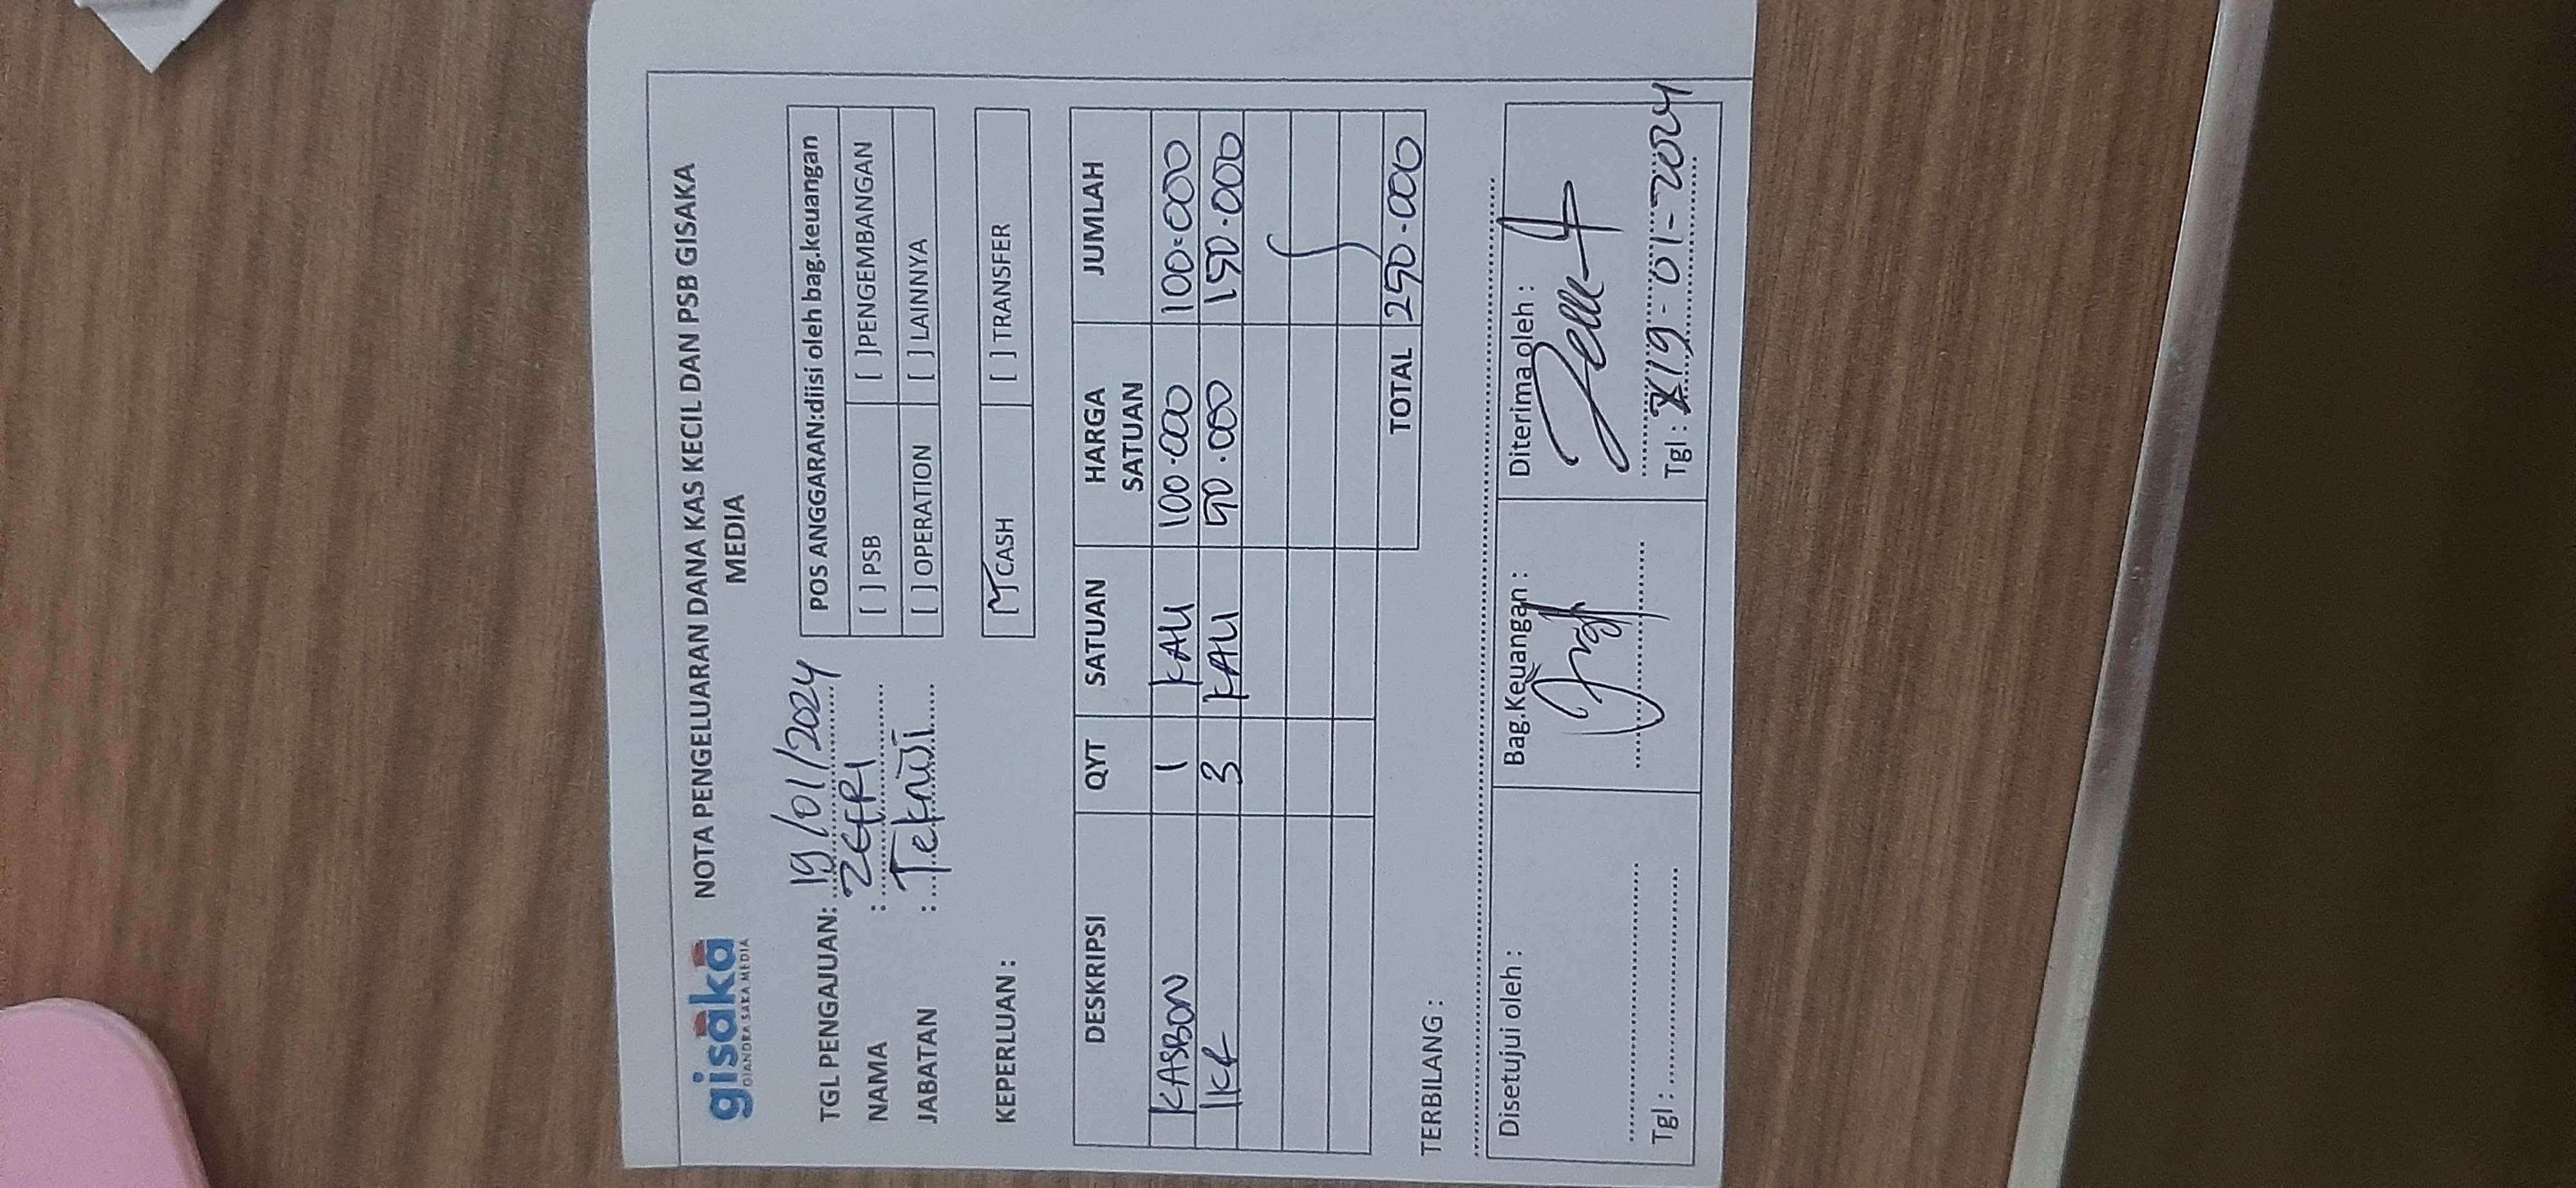 gisaka
GIANDRA SAKA MEDIA
NOTA PENGELUARAN DANA KAS KECIL DAN PSB GISAKA
MEDIA
TGL PENGAJUAN: 19/01/2024
NAMA : ZEFRI
JABATAN : Teknisi
POS ANGGARAN:diisi oleh bag.keuangan
[ ] PSB [ ]PENGEMBANGAN
[ ] OPERATION [ ] LAINNYA
KEPERLUAN :
[✓] CASH [ ] TRANSFER
DESKRIPSI QYT SATUAN HARGA SATUAN JUMLAH
KASBON 1 KALI 100.000 100.000
IKR 3 KALI 50.000 150.000
TOTAL 250.000
TERBILANG :
Disetujui oleh : Bag.Keuangan : Diterima oleh :
Tgl : Tgl : 19-01-2024